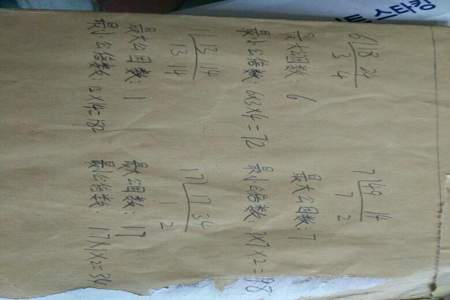 6 18 24
3 4
最大公因数 6
最小公倍数 6×3×4=72
7 49 14
7 2
最大公因数: 7
最小公倍数 7×7×2=98
1 13 14
13 14
最大公因数: 1
最小公倍数: 13×14=182
17 17 34
1 2
最大公因数: 17
最小公倍数: 17×1×2=34